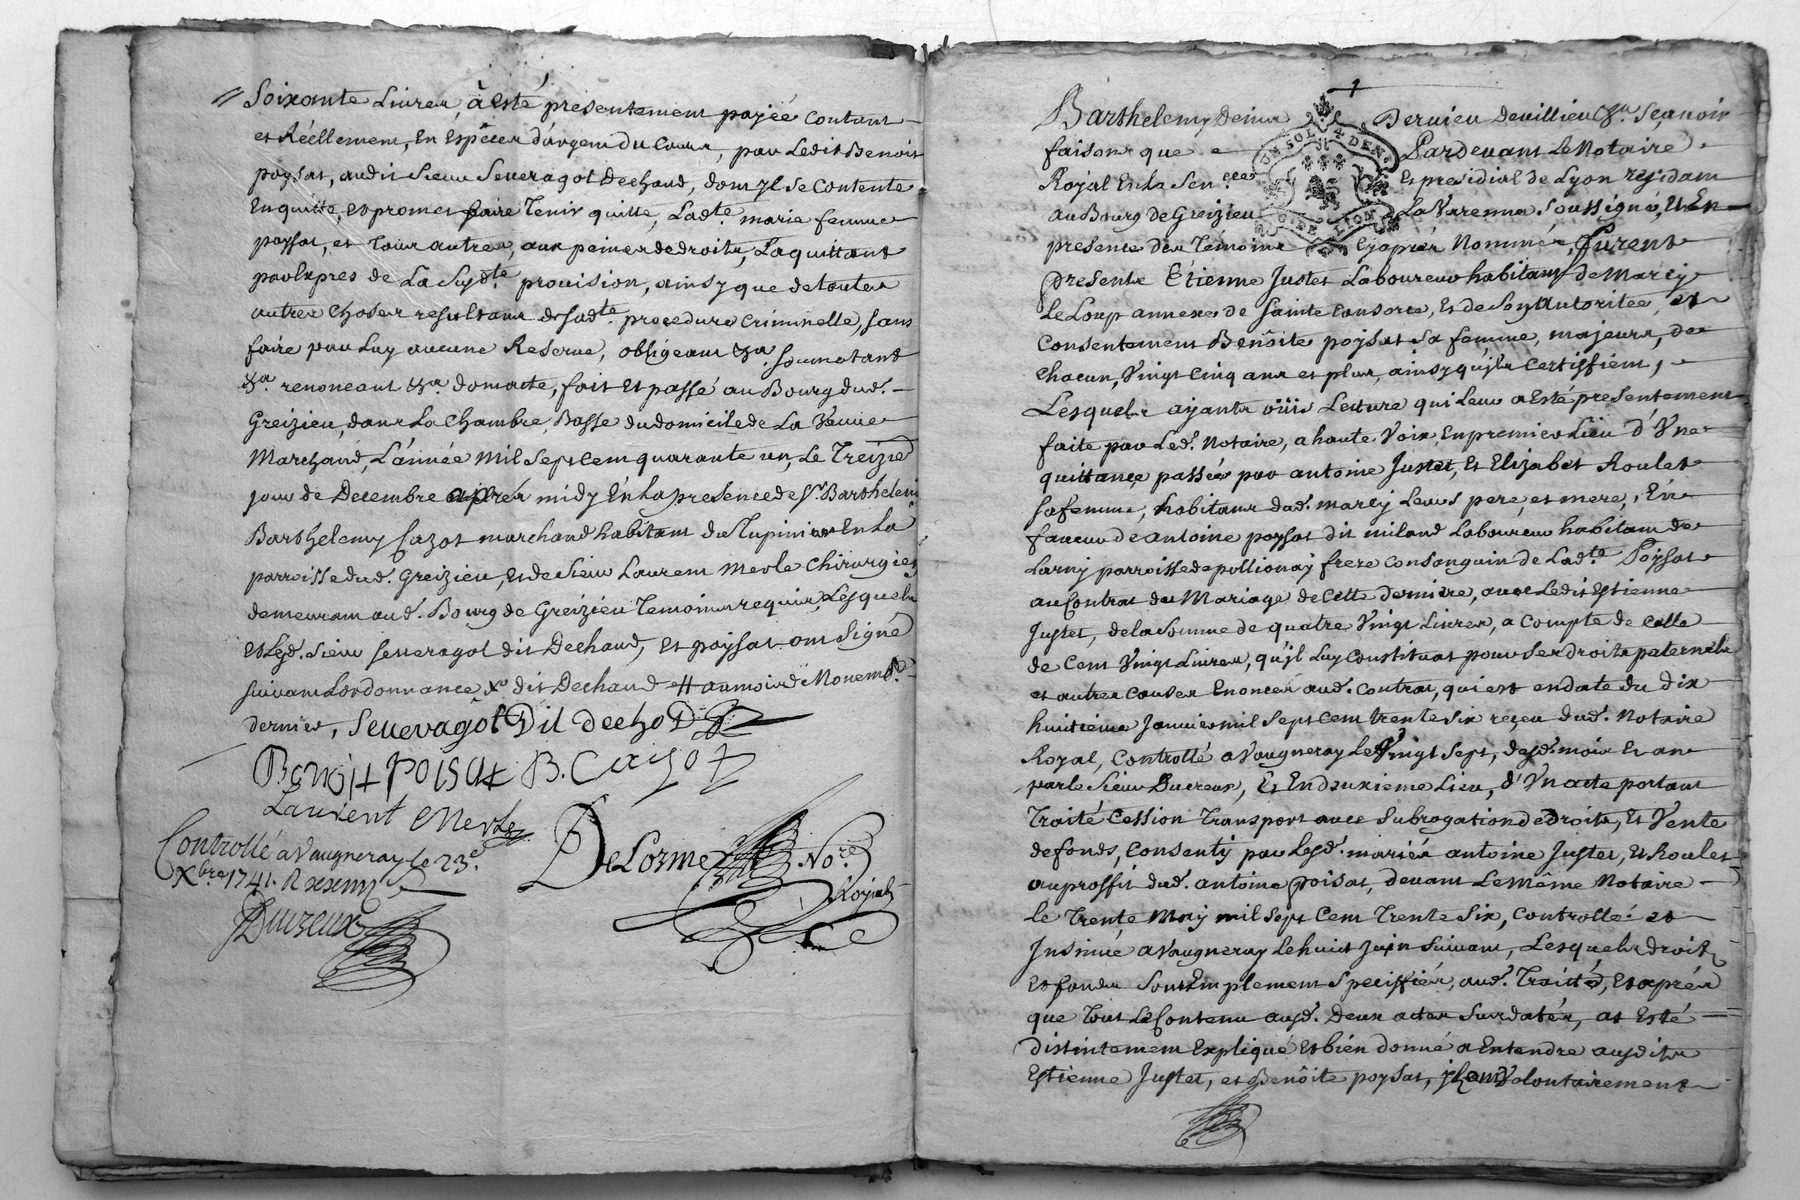 Soixante Livres, à esté présentement payéé Contant
et Réellement, En Espêces d'argent du Cours, par Ledit Benoit
poysat, audit Sieur Severagot Dechaud, dont jl Se Contente
En quitte, et promet faire Tenir quitte, Ladte. marie femme
poysat, et tous autres, aux peines de droits, Laquittant
par Expres de La Susdte. provision, ainsy que de toutes
autres Choses resultans de Sadte. procedure Criminelle, Sans
faire par Luy aucune Reserve, obligeant &a. Soumetant
&a. renonceant &a. dont acte, fait Et passé au Bourg dud.
Greizieu, dans La Chambre Basse du domicile de La Veuve
Marchand, L'année mil Sept Cent quarante un, Le Treizie
jour de Decembre aprés midy En La presence de Sr. Barthelemi
Barthelemy Cazot marchand habitant du Tupinier En La
parroisse dud. Greizieu, Et de Sieur Laurent Merle Chirurgien
demeurant aud. Bourg de Greizieu Temoins requis, Lesquels
Et Lesd. Sieur Severagot dit Dechaud, Et poysat ont Signé
Suivant L'ordonnance dit Dechaud au mois de Novembre
dernier, Sevevagot Dit dechoD
Benoit Poisat B. Cazot
Laurent Merle
DeLorme Nore. Royal
Controllé a Vaugneray le 23e
Xbre 1741. R
Ducreux
1
UN SOL 4 DEN.
G. DE LION
Barthelemy Denis Dervieu Devillieu &a. Sçavoir
faisons que Pardevant Le Notaire
Royal En La Senccée Et presidial de Lyon residant
au Bourg de Greizieu La Varenne Soussigné, Et En
presence des Témoins Cy aprés Nommés, furent
presents Étienne Justet Laboureur habitant de Marcy
Le Loup annexe de Sainte Consorce, Et de Son Autorité, et
Consentement Benôite poysat Sa femme, majeurs, de
Chacun, Vingt Cinq ans et plus, ainsy qu'jls Certiffient,
Lesquels ayants oüis Lecture qui Leur a Esté presentement
faite par Led. Notaire, a haute Voix, En premier Lieu d'Une
quittance passée par antoine Justet, Et Elizabet Roulet
Sa femme, habitans dud. marcy Leurs pere, et mere, En
faveur de Antoine poysat dit milaud Laboureur habitant de
Larny parroisse de pollionay frere Consanguin de Ladte. Poysat
au Contrat du Mariage de Cette derniere, avec Ledit Estienne
Justet, de La Somme de quatre Vingt Livres, a Compte de Celle
de Cent Vingt Livres, qu'jl Luy Constituat pour Ses droits paternels
et autres Causes Enoncés aud. Contrat, qui est en date du dix
huitieme Janvier mil Sept Cent trente Six reçeu dud. Notaire
Royal, Controllé a Vaugneray Le Vingt Sept, desd. mois Et an
par le Sieur Ducreux, Et En deuxieme Lieu, d'Un acte portant
Traité Cession Transport avec Subrogation de Droits, Et Vente
de fonds, Consenty par Lesd. mariés antoine Justet, Et Roulet
au proffit dud. antoine poisat, devant Le Même Notaire
le Trente May mil Sept Cent Trente Six, Controllé et
Insinué a Vaugneray Le huit Juin Suivant, Lesquels droits
Et fonds Sont Emplement Speciffiés, aud. Traitté, Et aprés
que Tout Le Contenu ausd. Deux actes Surdatés, at Esté
distintement Expliqué Et bién donné a Entendre ausdits
Estienne Justet, et Benôite poysat, jls ont Volontairement